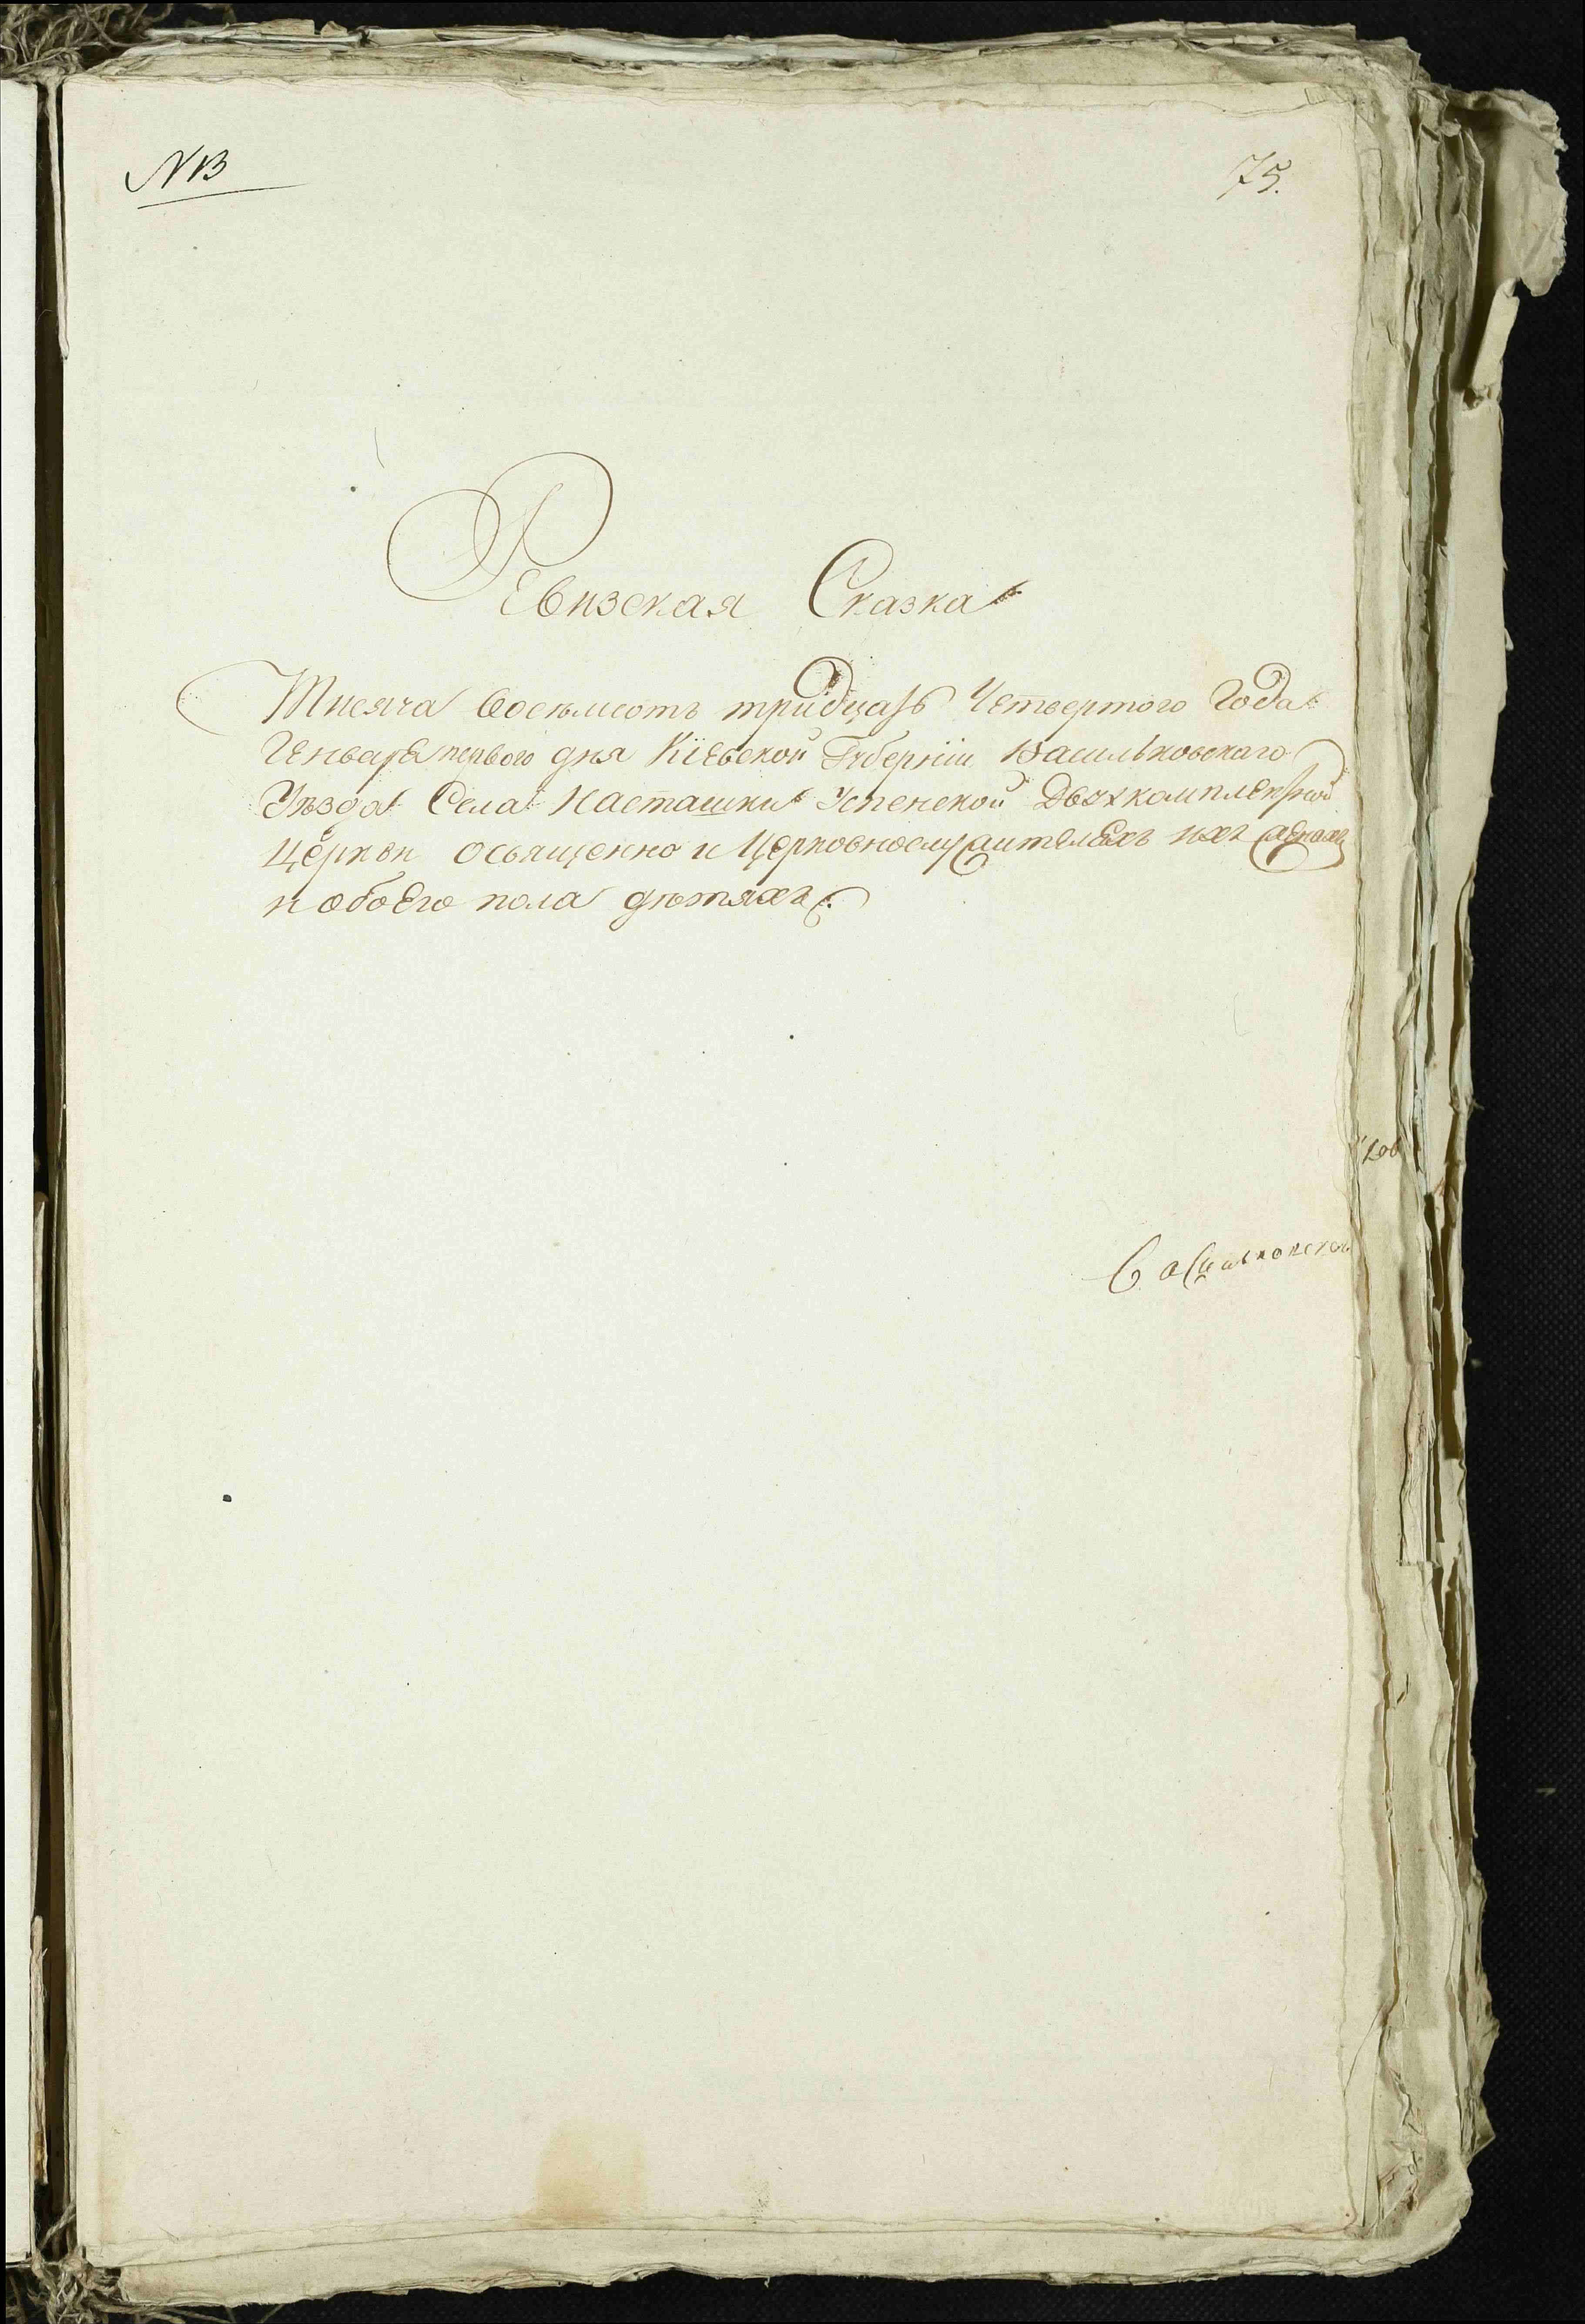 NB
75.
Ревизская Сказка
Тисяча восемьсотъ тридцать Четвертого Года
Генваря первого дня Кіевской Губерніи Васильковскаго
Уѣзда Села Насташки Успенской Двохкомплектной
Церкви освященно и Церковнослужителяхъ ихъ женахъ
и обоЕго пола дѣтяхъ.